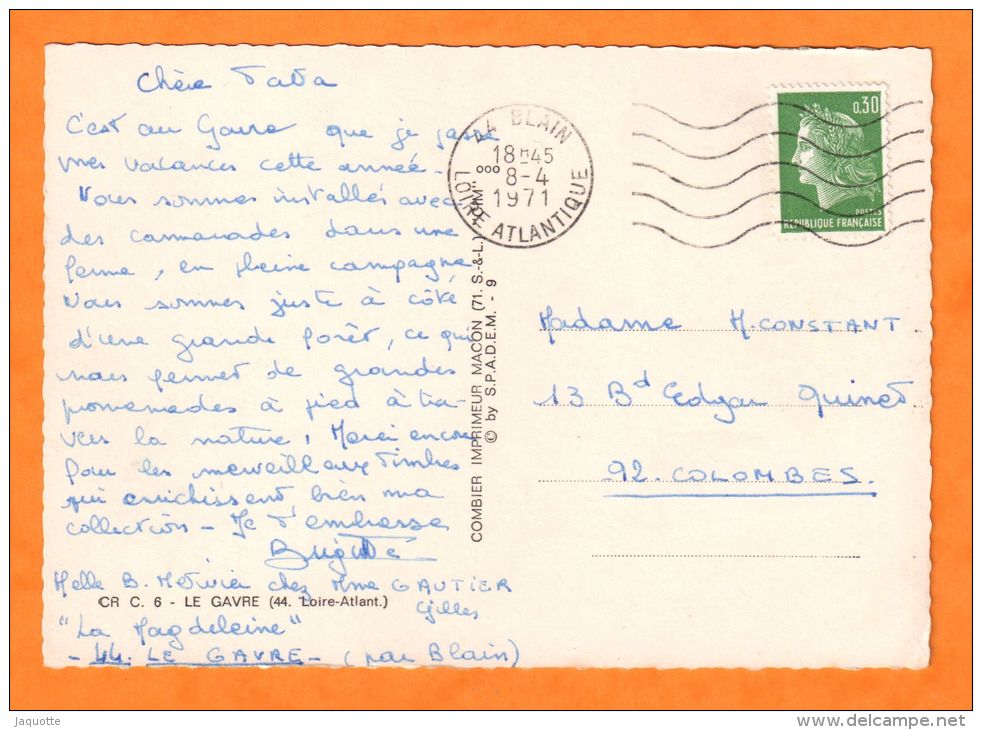 Chère Tata
C'est au Gavre que je passe
mes vacances cette année.
Nous sommes installés avec
des cammarades dans une
ferme, en pleine campagne.
Nous sommes juste à côté
d'une grande forêt, ce qui
nous permet de grandes
promenades à pied à tra-
vers la nature, Merci encore
pour les merveilleux timbres
qui enrichissent bien ma
collection - Je t'embrasse
Brigitte
Melle B. chez Mme GAUTIER
Gilles
"La Magdeleine"
- 44. LE GAVRE - (par Blain)
CR C. 6 - LE GAVRE (44. Loire-Atlant.)
COMBIER IMPRIMEUR MACON (71. S.-&-L.) "CIM"
© by S.P.A.D.E.M. - 9
44 BLAIN
18H45
8-4
1971
LOIRE ATLANTIQUE
0,30
POSTES
REPUBLIQUE FRANÇAISE
Madame M. CONSTANT
13 Bd Edgar Quinet
92. COLOMBES.
Jaquotte
delcampe.net